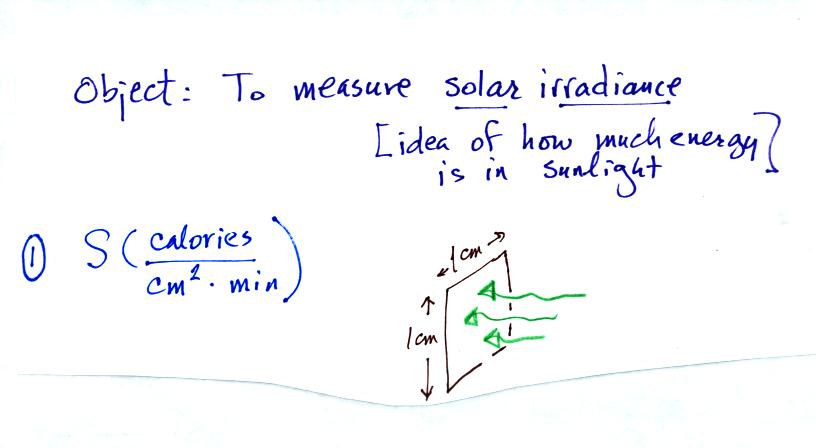 Object: To measure solar irradiance
[idea of how much energy
is in sunlight]
① S (calories / cm² · min)
1 cm
1 cm